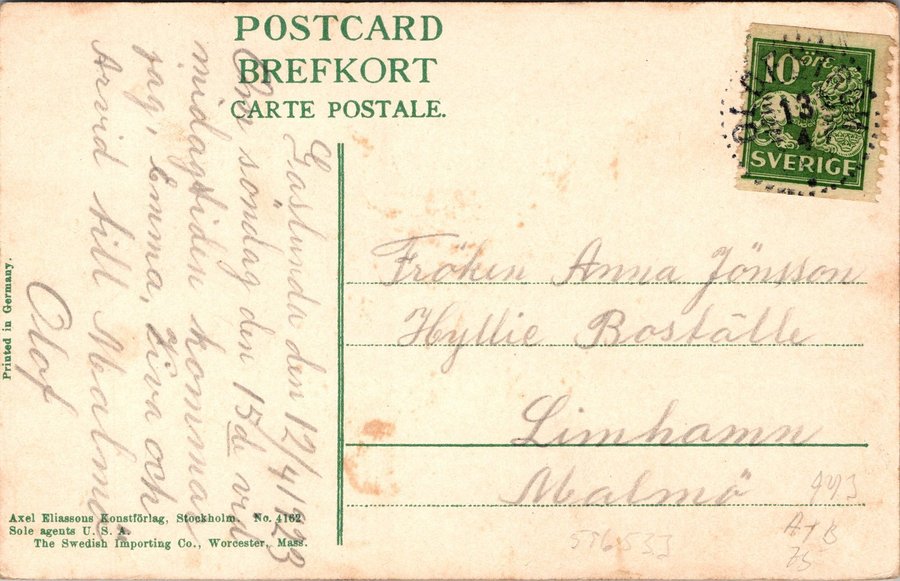 POSTCARD
BREFKORT
CARTE POSTALE.
10 ÖRE
SVERIGE
13
4
Gåslunda den 12/4 1923
Om söndag den 15de vid
middagstiden kommer
jag, Emma, Viva och
Arvid till Malmö
Olof
Fröken Anna Jönsson
Hyllie Boställe
Limhamn
Malmö
Printed in Germany.
Axel Eliassons Konstförlag, Stockholm. No. 4162
Sole agents U. S. A.
The Swedish Importing Co., Worcester, Mass.
A+B
75